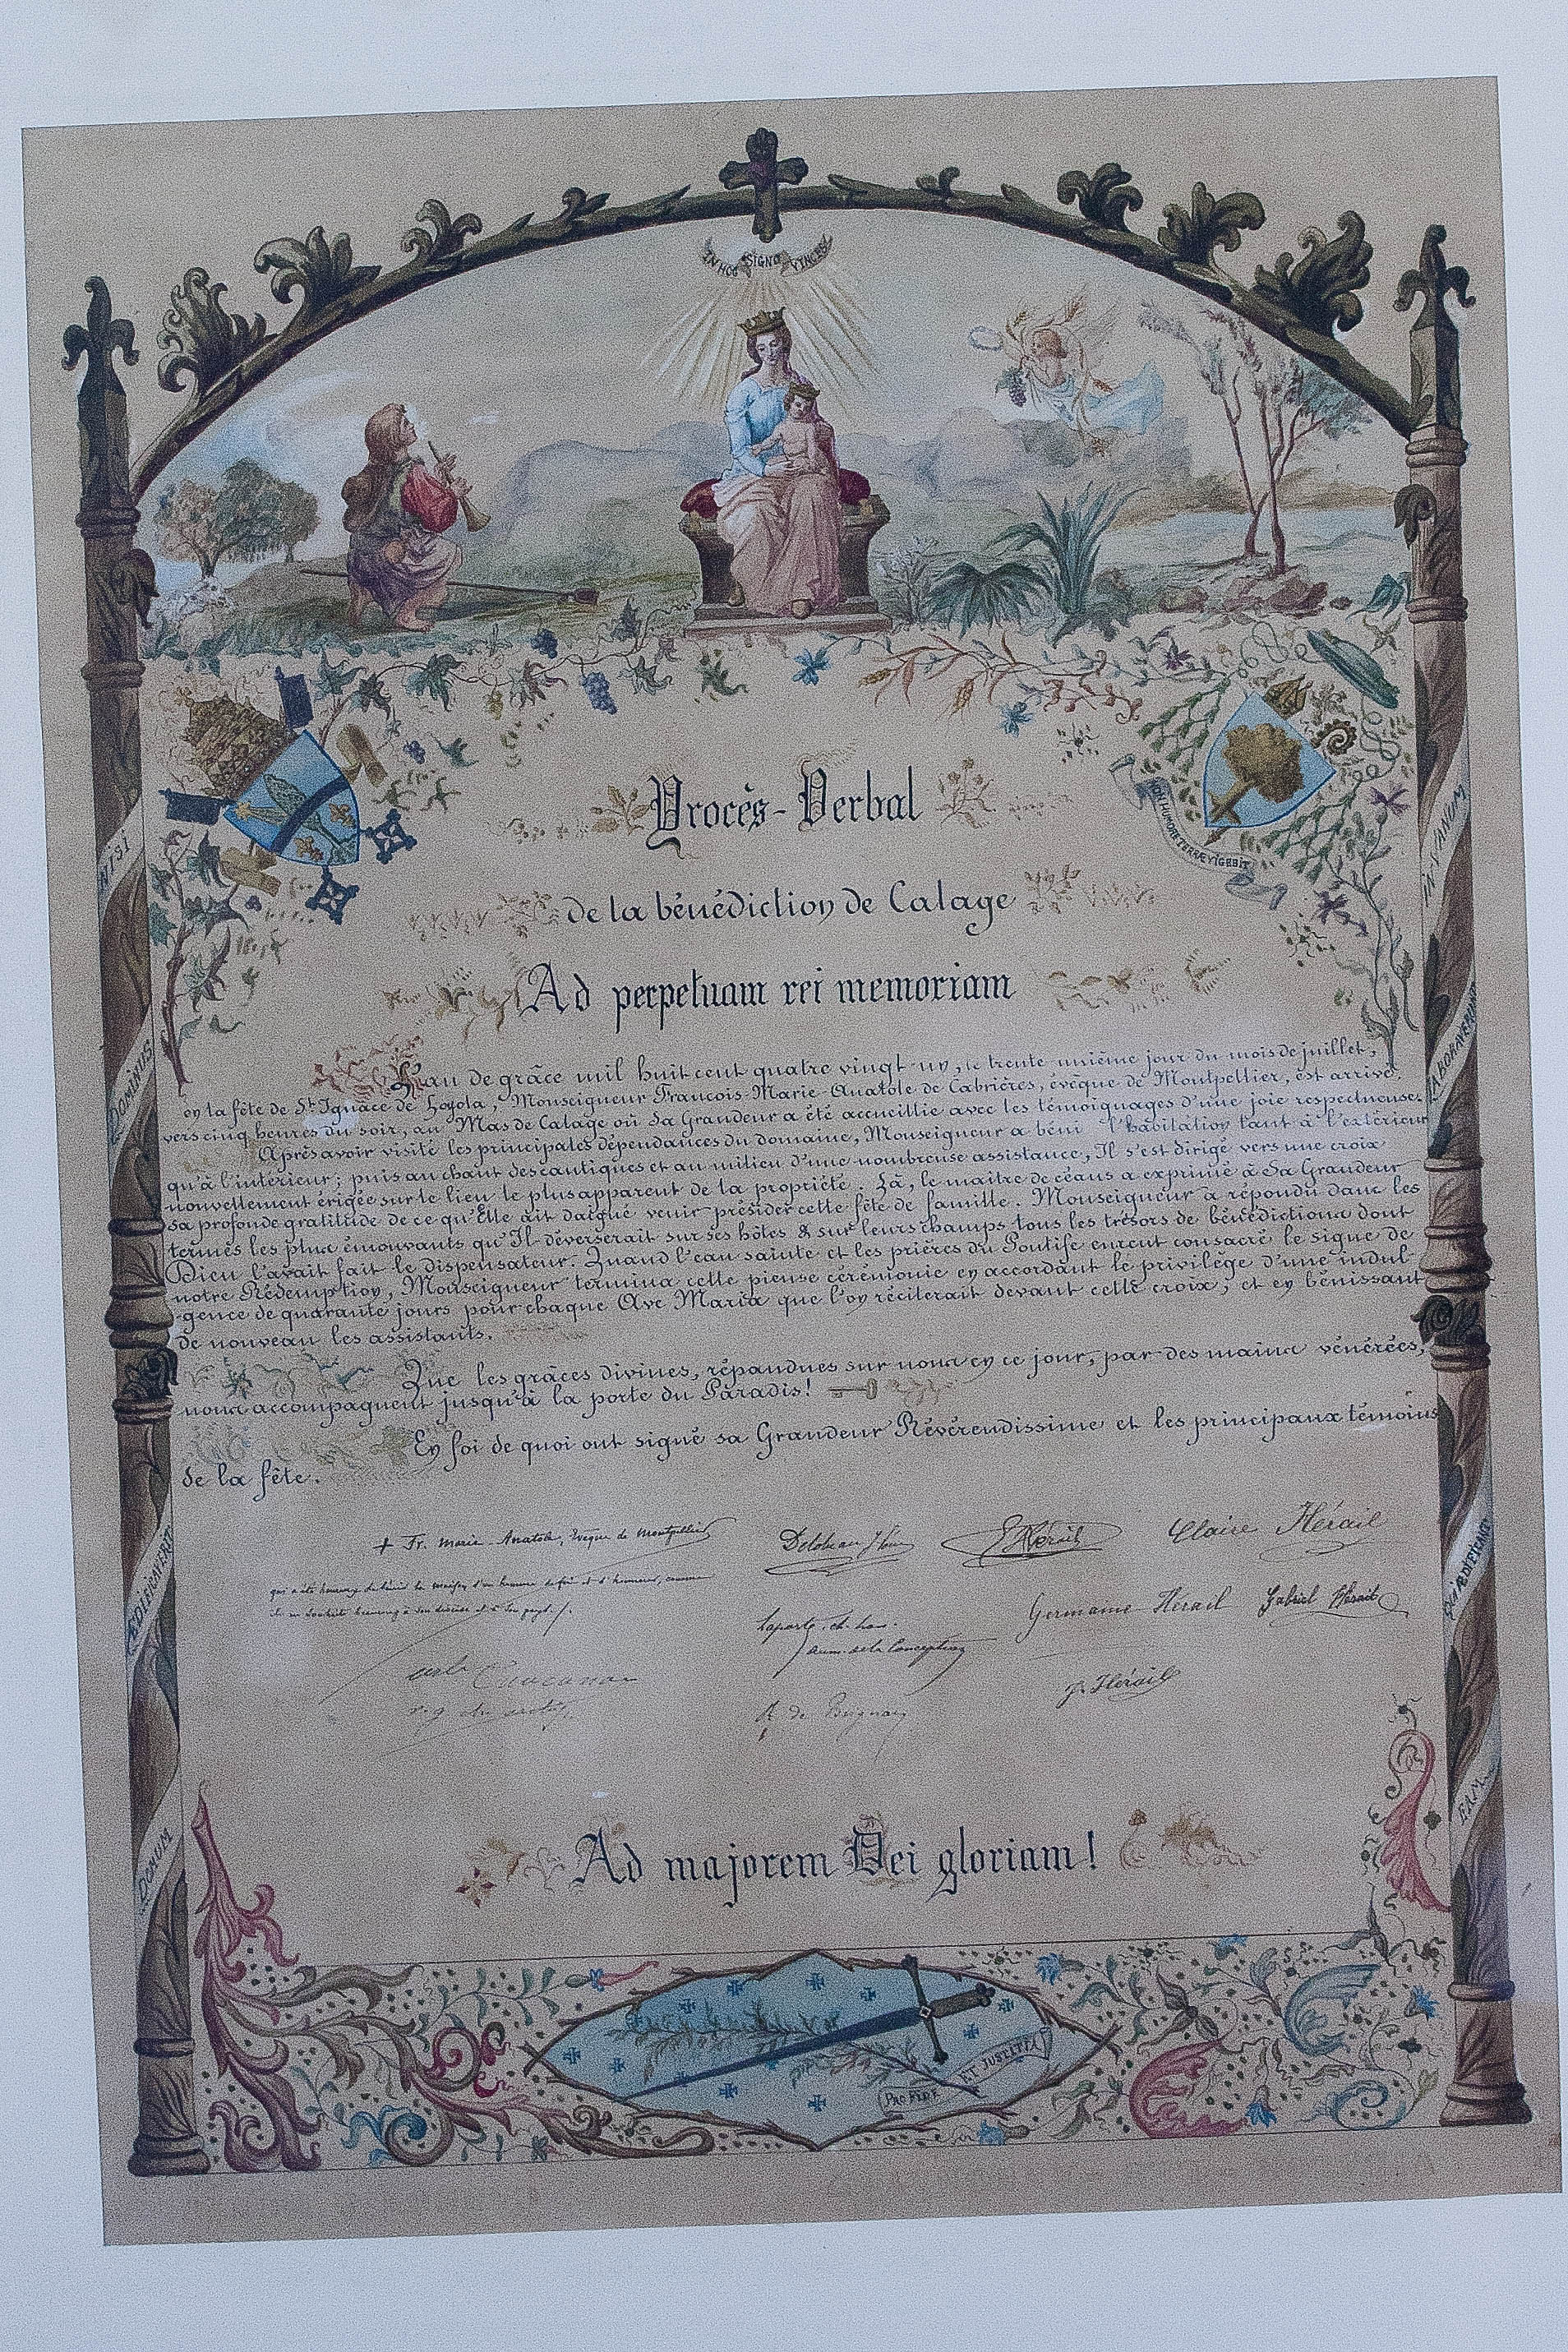 IN HOC SIGNO VINCES
Procès-Verbal
NON HUMORE TERRÆ VIGEBIT
de la bénédiction de Calage
Ad perpetuam rei memoriam
L'an de grâce mil huit cent quatre vingt-un, le trente unième jour du mois de juillet,
en la fête de St Ignace de Loyola, Monseigneur François-Marie-Anatole de Cabrières, évêque de Montpellier, est arrivé,
vers cinq heures du soir, au Mas de Calage où Sa Grandeur a été accueillie avec les témoignages d'une joie respectueuse.
Après avoir visité les principales dépendances du domaine, Monseigneur a béni l'habitation tant à l'extérieur
qu'à l'intérieur; puis au chant des cantiques et au milieu d'une nombreuse assistance, Il s'est dirigé vers une croix
nouvellement érigée sur le lieu le plus apparent de la propriété. Là, le maître de céans a exprimé à Sa Grandeur
sa profonde gratitude de ce qu'Elle ait daigné venir présider cette fête de famille. Monseigneur a répondu dans les
termes les plus émouvants qu'Il déverserait sur ses hôtes & sur leurs champs tous les trésors de bénédictions dont
Dieu l'avait fait le dispensateur. Quand l'eau sainte et les prières du Pontife eurent consacré le signe de
notre Rédemption, Monseigneur termina cette pieuse cérémonie en accordant le privilége d'une indul-
-gence de quarante jours pour chaque Ave Maria que l'on réciterait devant cette croix, et en bénissant
de nouveau les assistants.
Que les grâces divines, répandues sur nous en ce jour, par des mains vénérées,
nous accompagnent jusqu'à la porte du Paradis!
En foi de quoi ont signé sa Grandeur Révérendissime et les principaux témoins
de la fête.
+ Fr. Marie-Anatole, Evêque de Montpellier
qui a été heureux de bénir la maison d'un homme de foi et d'honneur, comme
E Hérail
Claire Hérail
Germaine Hérail
Gabriel Hérail
Laporte ch. hon.
aum. de la Conception
J. Hérail
Ad majorem Dei gloriam!
PRO FIDE ET JUSTITIA
NISI
DOMINUS
ÆDIFICAVERIT
DOMUM
IN VANUM
LABORAVERUNT
QUI ÆDIFICANT
EAM